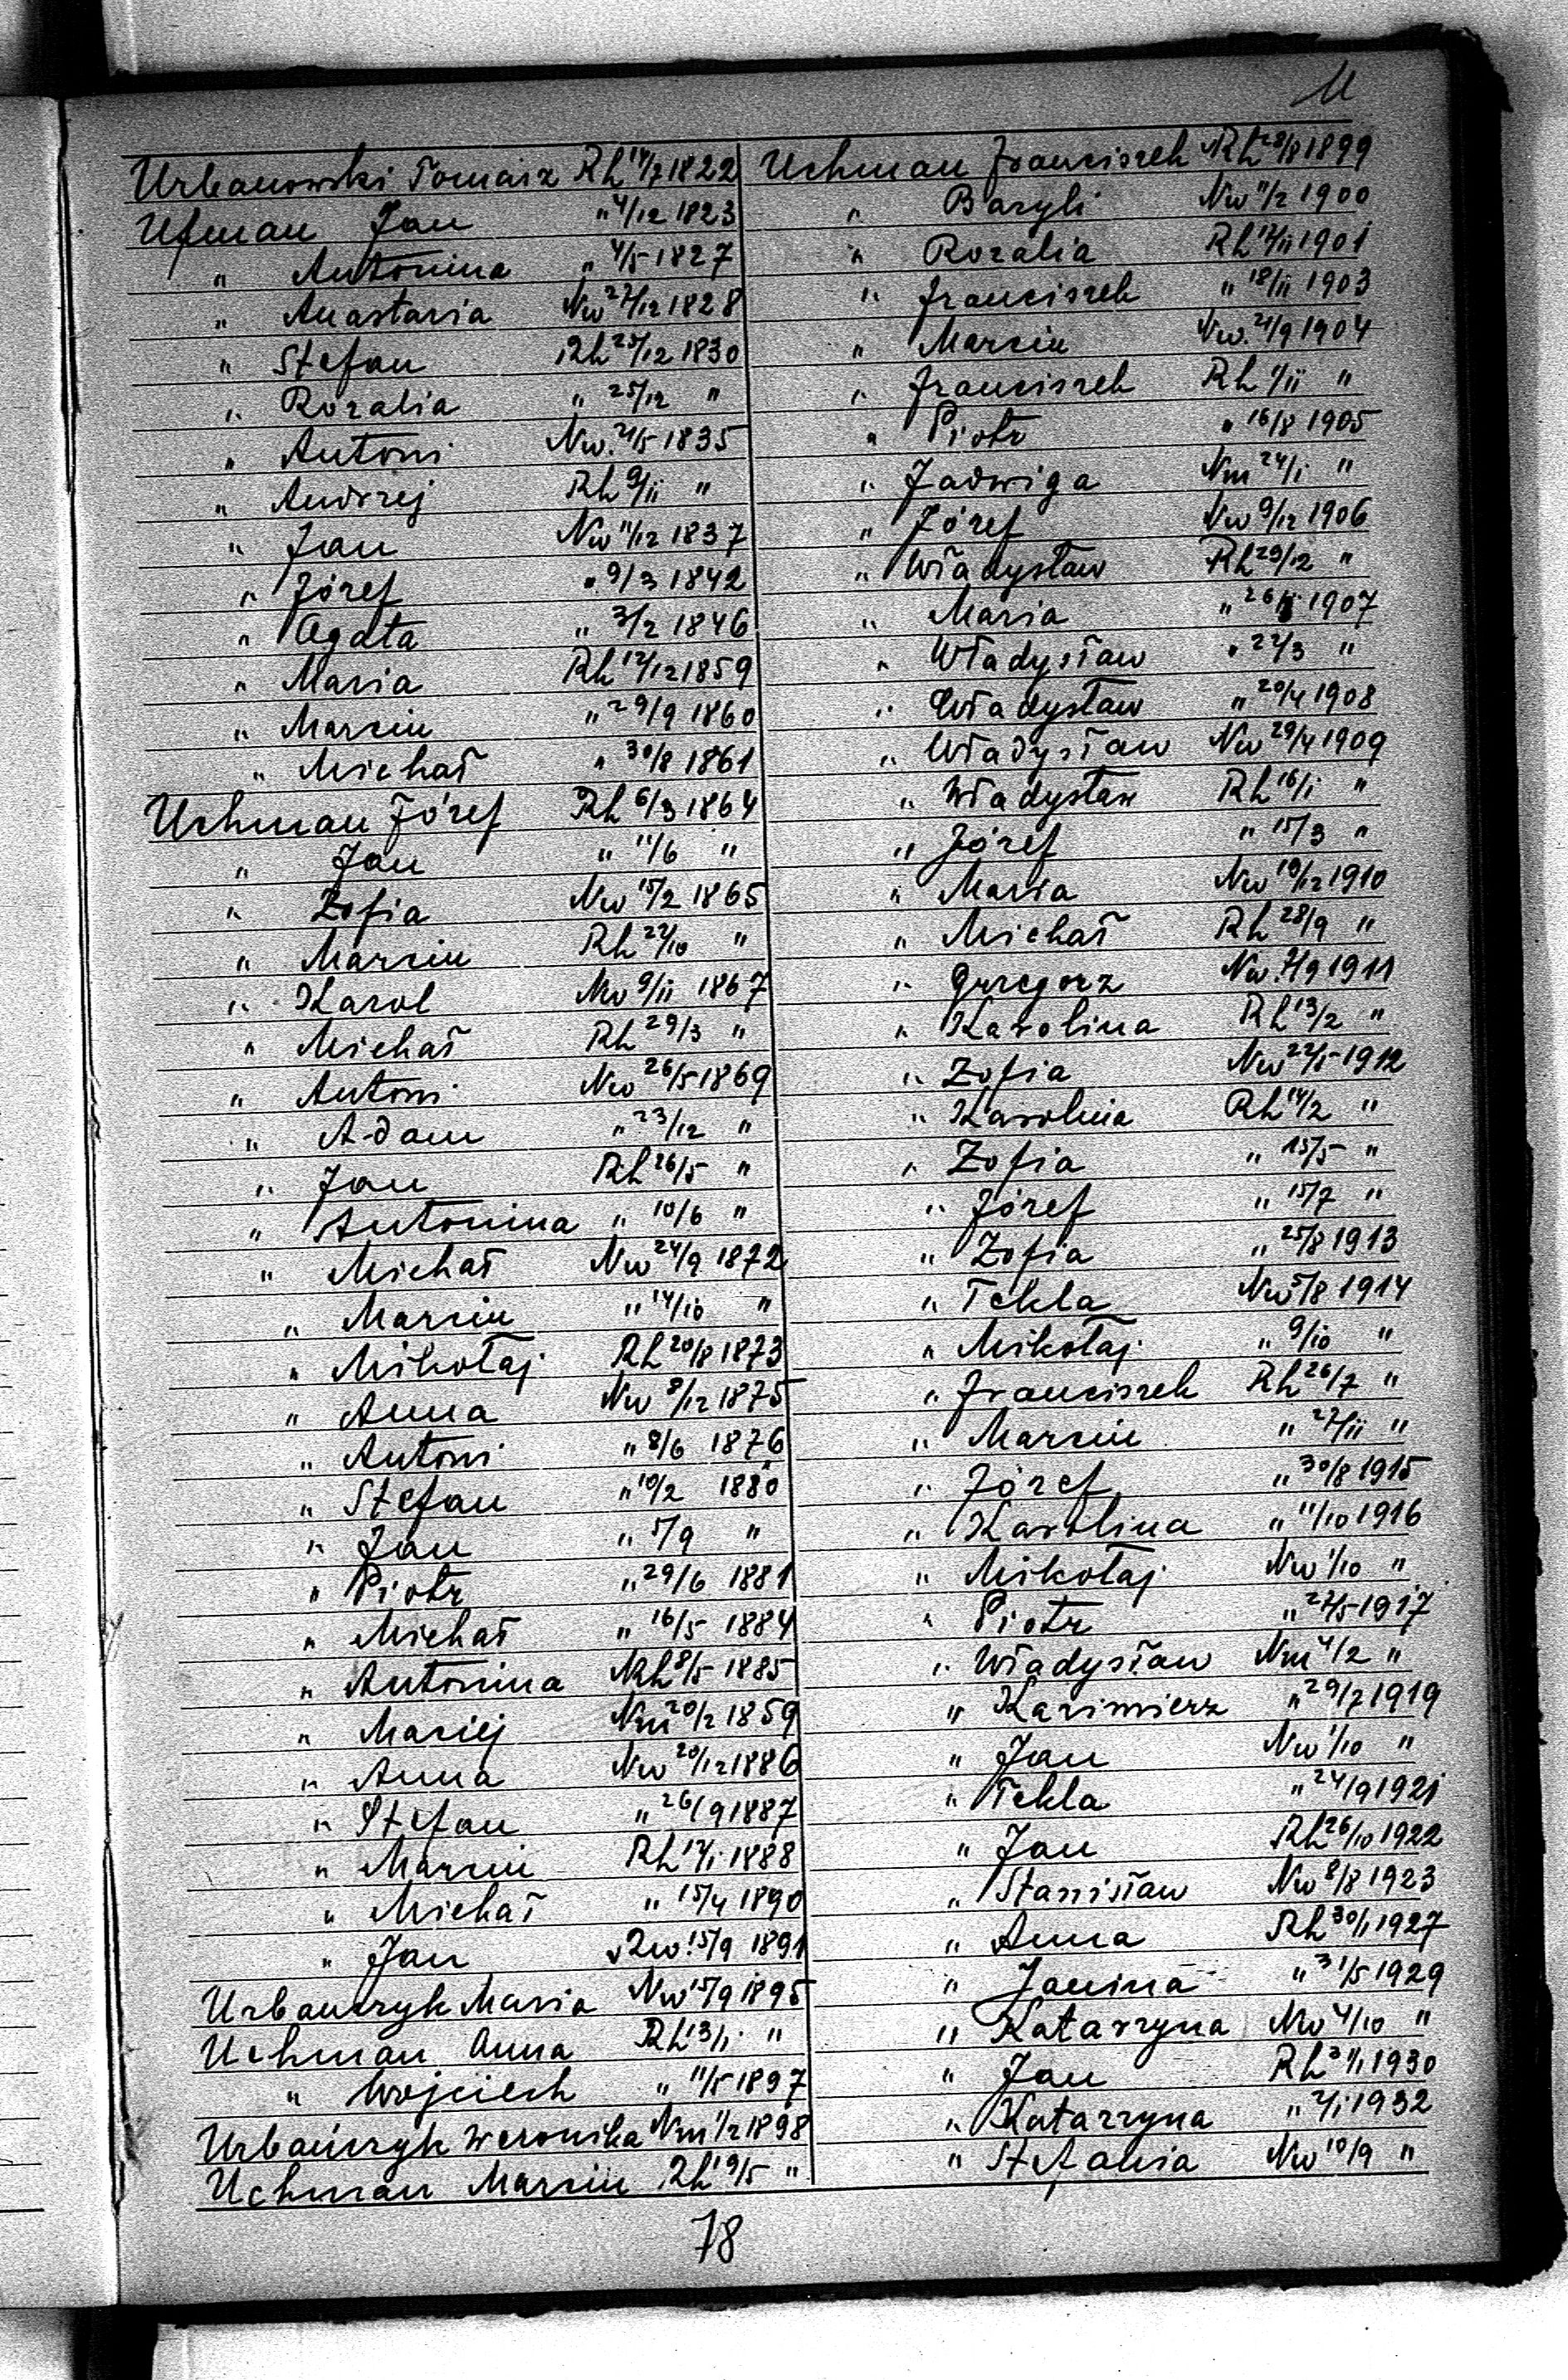 U
Urbanowski Tomasz Rh 14/7 1822
Ufman Jan " 4/12 1823
" Antonina " 4/5 1827
" Anastazia Nw 27/12 1828
" Stefan Rh 25/12 1830
" Rozalia " 25/12 "
" Antoni Nw. 21/5 1835
" Andrzej Rh 9/11 "
" Jan Nw 11/12 1837
" Józef " 9/3 1842
" Agata " 3/2 1846
" Maria Rh 12/12 1859
" Marcin " 29/9 1860
" Michał " 30/8 1861
Uchman Józef Rh 6/3 1864
" Jan " 11/6 "
" Zofia Nw 15/2 1865
" Marcin Rh 22/10 "
" Karol Nw 9/11 1867
" Michał Rh 29/3 "
" Antoni Nw 26/5 1869
" Adam " 23/12 "
" Jan Rh 26/5 "
" Antonina " 10/6 "
" Michał Nw 24/9 1872
" Marcin " 14/10 "
" Mikołaj Rh 20/8 1873
" Anna Nw 8/12 1875
" Antoni " 8/6 1876
" Stefan " 10/2 1880
" Jan " 5/9 "
" Piotr " 29/6 1881
" Michał " 16/5 1884
" Antonina Rh 8/5 1885
" Maciej Nm 20/2 1859
" Anna Nw 20/12 1886
" Stefan " 26/9 1887
" Marcin Rh 12/1 1888
" Michał " 15/4 1890
" Jan Rw. 15/9 1891
Urbańczyk Maria Nw 15/9 1895
Uchman Anna Rh 13/1 "
" Wojciech " 11/5 1897
Urbańczyk Weronika Nm 1/2 1898
Uchman Marcin Rh 19/5 "
Uchman Franciszek Rh 28/8 1899
" Baryli Nw 11/2 1900
" Rozalia Rh 12/11 1901
" Franciszek " 18/11 1903
" Marcin Nw. 21/9 1904
" Franciszek Rh 1/11 "
" Piotr " 16/8 1905
" Jadwiga Nm 24/1 "
" Józef Nw 9/12 1906
" Władysław Rh 29/12 "
" Maria " 1907
" Władysław " 22/3 "
" Władysław " 20/4 1908
" Władysław Nw 29/4 1909
" Władysław Rh 16/1 "
" Józef " 15/3 "
" Maria Nw 10/12 1910
" Michał Rh 28/9 "
" Grzegorz Nw. 7/9 1911
" Karolina Rh 13/2 "
" Zofia Nw 22/5 1912
" Karolina Rh 14/2 "
" Zofia " 15/5 "
" Józef " 15/7 "
" Zofia " 25/8 1913
" Tekla Nw 5/8 1914
" Mikołaj " 9/10 "
" Franciszek Rh 26/7 "
" Marcin " 27/11 "
" Józef " 30/8 1915
" Karolina " 11/10 1916
" Mikołaj Nw 1/10 "
" Piotr " 27/5 1917
" Władysław Nm 4/2 "
" Kazimierz " 29/7 1919
" Jan Nw 1/10 "
" Tekla " 24/9 1921
" Jan Rh 26/10 1922
" Stanisław Nw 8/8 1923
" Anna Rh 30/1 1927
" Janina " 31/5 1929
" Katarzyna Nw 4/10 "
" Jan Rh 31/1 1930
" Katarzyna " 2/1 1932
" Stefania Nw 10/9 "
78